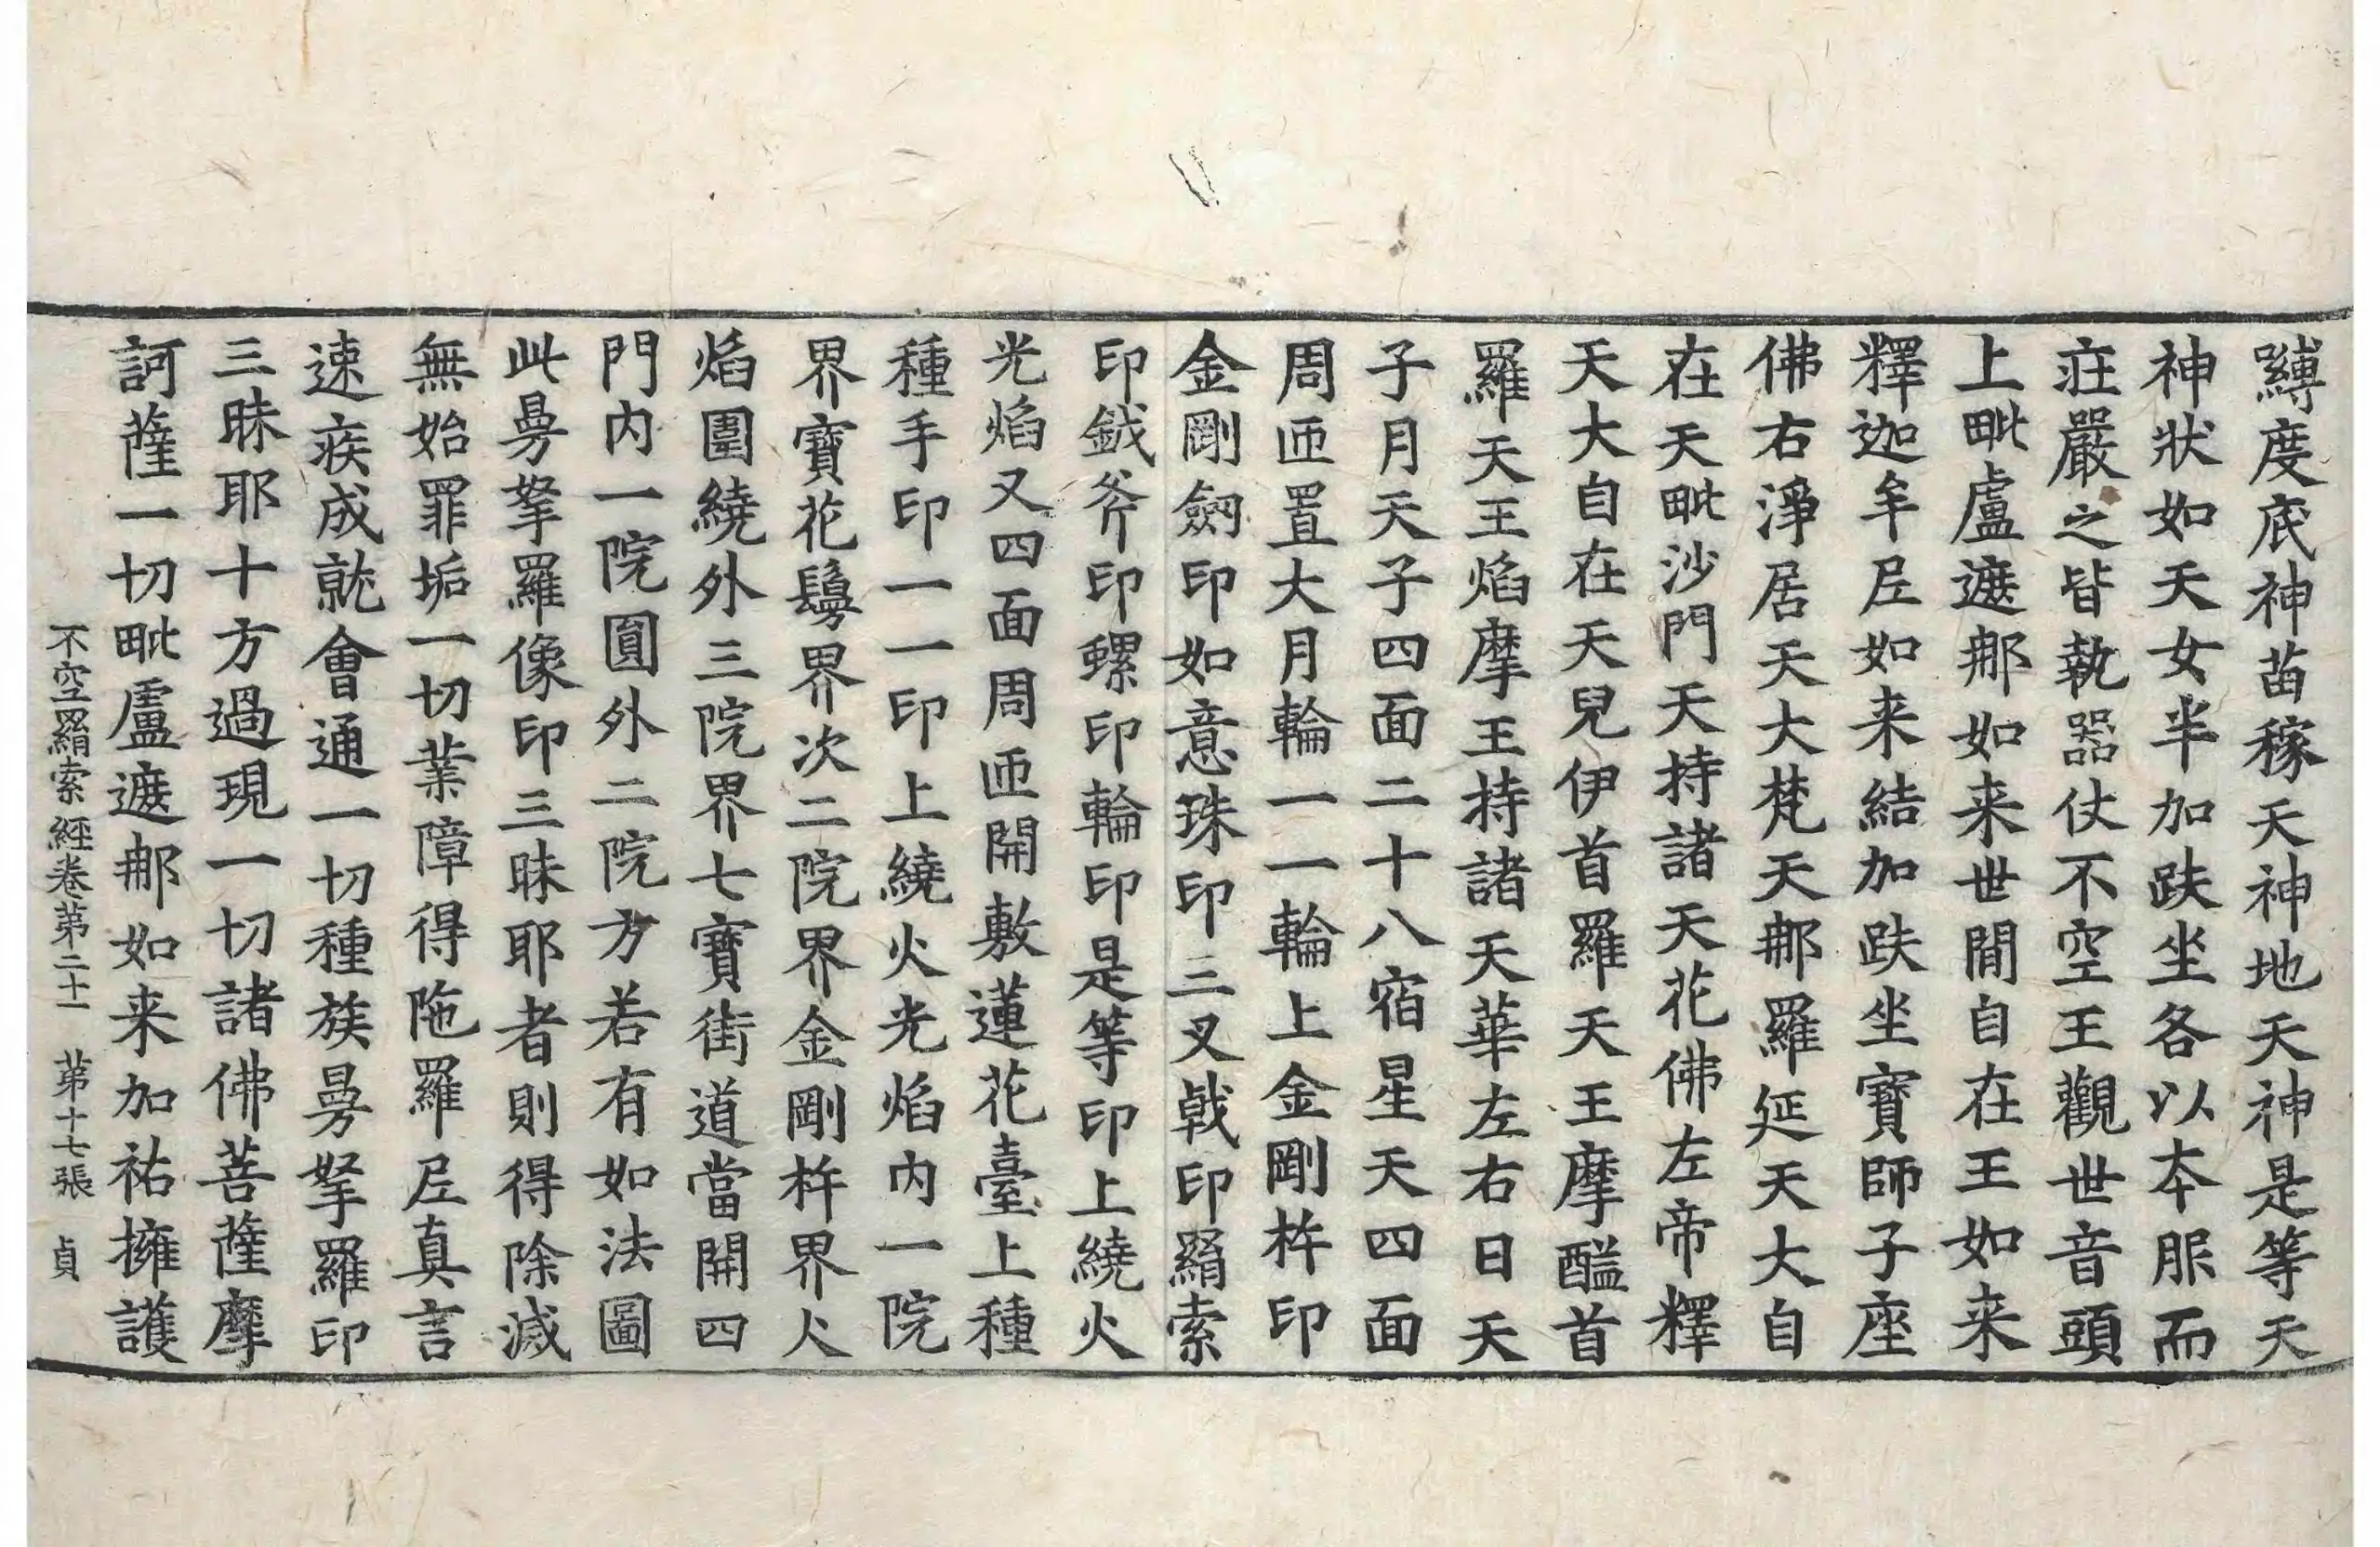 嚩度底神苗稼天神地天神是等天
神狀如天女半加趺坐各以本服而
莊嚴之皆執器仗不空王觀世音頭
上毗盧遮那如来世間自在王如来
釋迦牟尼如来結加趺坐寶師子座
佛右淨居天大梵天那羅延天大自
在天毗沙門天持諸天花佛左帝釋
天大自在天兒伊首羅天王摩醯首
羅天王焰摩王持諸天華左右日天
子月天子四面二十八宿星天四面
周匝置大月輪一一輪上金剛杵印
金剛劒印如意珠印三叉戟印羂索
印鉞斧印螺印輪印是等印上繞火
光焰又四面周匝開敷蓮花臺上種
種手印一一印上繞火光焰内一院
界寶花鬘界次二院界金剛杵界火
焰圍繞外三院界七寶街道當開四
門内一院圓外二院方若有如法圖
此曼拏羅像印三昧耶者則得除滅
無始罪垢一切業障得陁羅尼真言
速疾成就會通一切種族曼拏羅印
三昧耶十方過現一切諸佛菩薩摩
訶薩一切毗盧遮那如来加祐擁護
不空羂索經卷第二十一　第十七張　貞